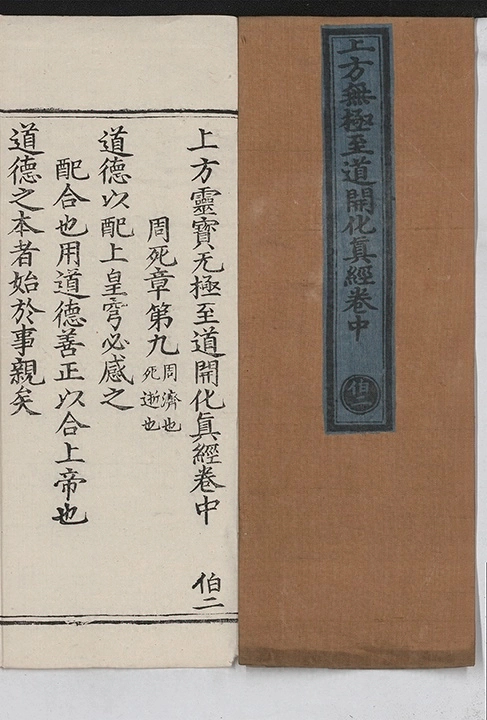 上方無極至道開化眞經卷中
伯二
上方靈寶无極至道開化眞經卷中 伯二
周死章第九 周濟也 死逝也
道德以配上皇穹必感之
配合也用道德善正以合上帝也
道德之本者始於事親矣